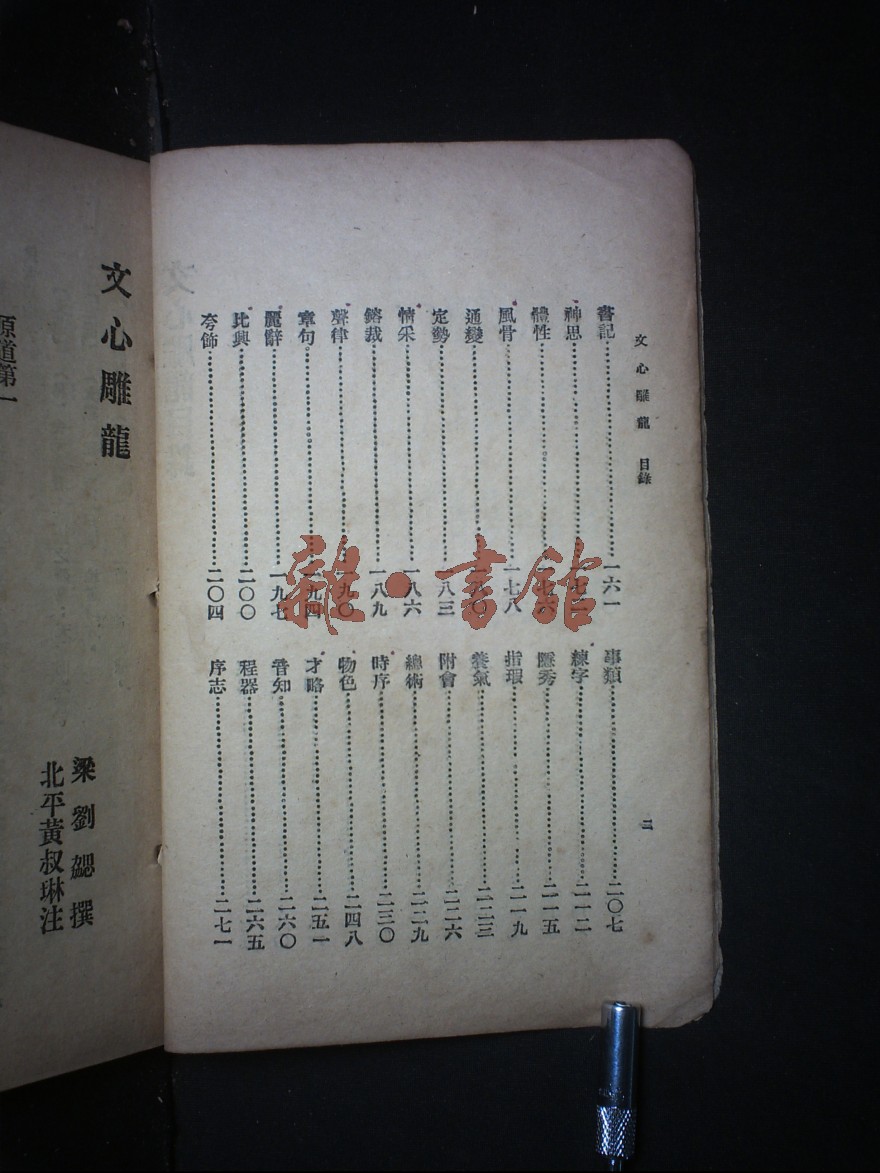 文心雕龍 目錄
書記……一六一
神思……
體性……
風骨……一七八
通變……一八〇
定勢……一八三
情采……一八六
鎔裁……一八九
聲律……一九〇
章句……一九四
麗辭……一九七
比興……二〇〇
夸飾……二〇四
事類……二〇七
練字……二一二
隱秀……二一五
指瑕……二一九
養氣……二二三
附會……二二六
總術……二二九
時序……二三〇
物色……二四八
才略……二五一
音知……二六〇
程器……二六五
序志……二七一
二
文心雕龍
梁劉勰撰
北平黃叔琳注
原道第一
雜·書館